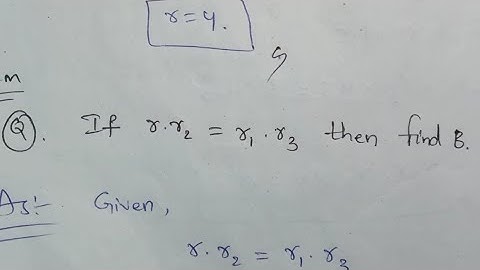 r=4.
m
Q. If r.r₂ = r₁.r₃ then find B.
As:- Given,
r.r₂ = r₁.r₃